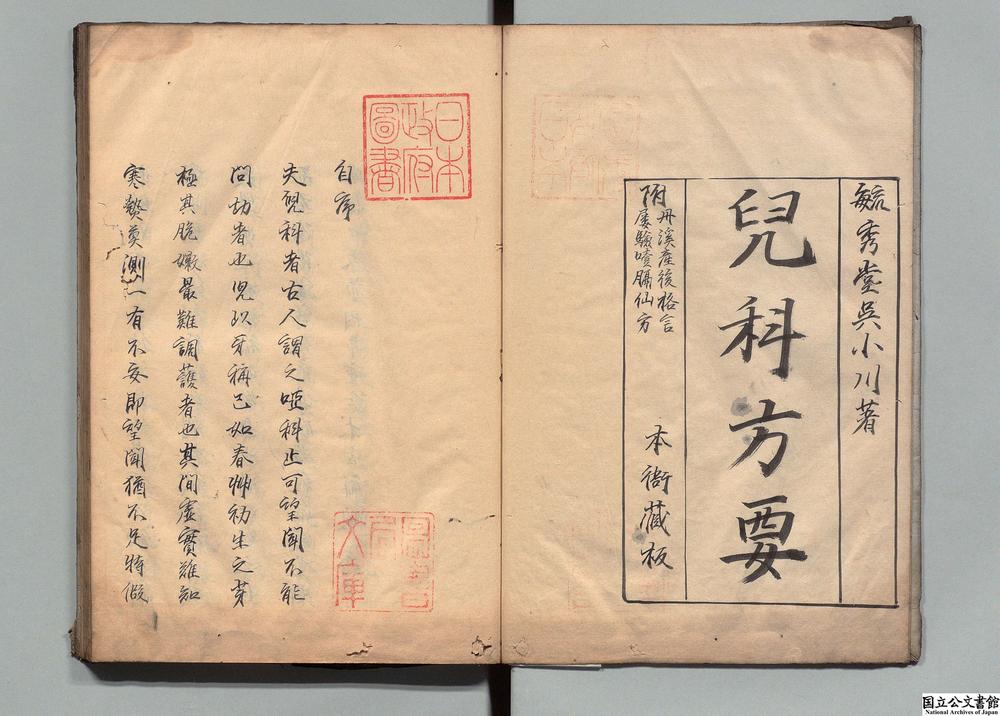 毓秀堂吳小川著
兒科方要
附
丹溪產後格言
屢驗噴膈仙方
本衙藏板
日本
政府
圖書
自序
夫兒科者古人謂之啞科止可望聞不能
問切者也兒以牙稱已如春艸初生之芽
極其脆嫩最難調護者也其間虛實難知
寒熱莫測一有不安即望聞猶不足恃倣
圖書
局
文庫
国立公文書館
National Archives of Japan